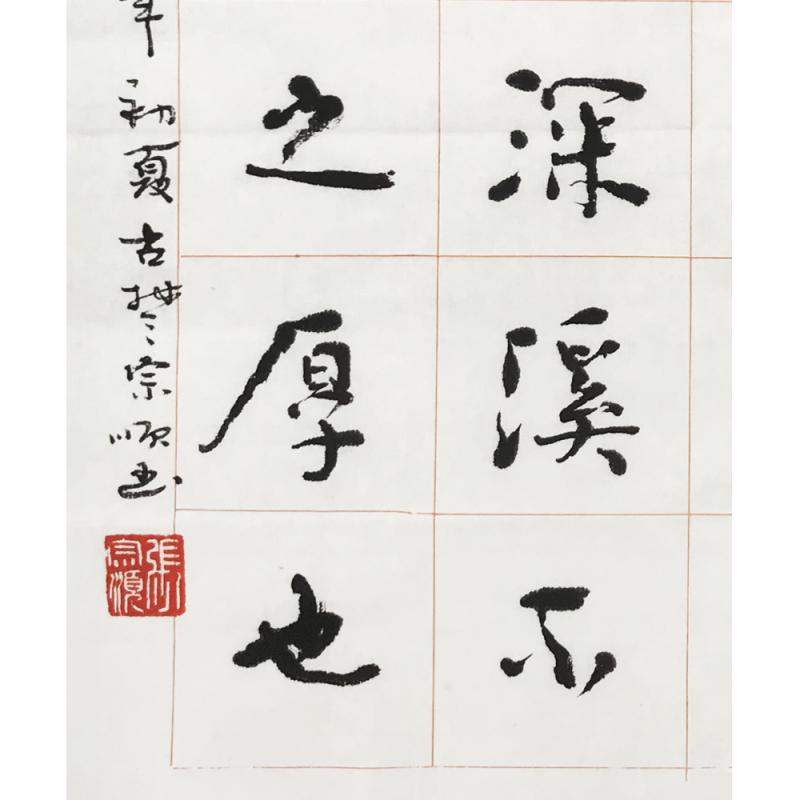 深溪不
之厚也
年初夏古楚宗顺书
张宗顺